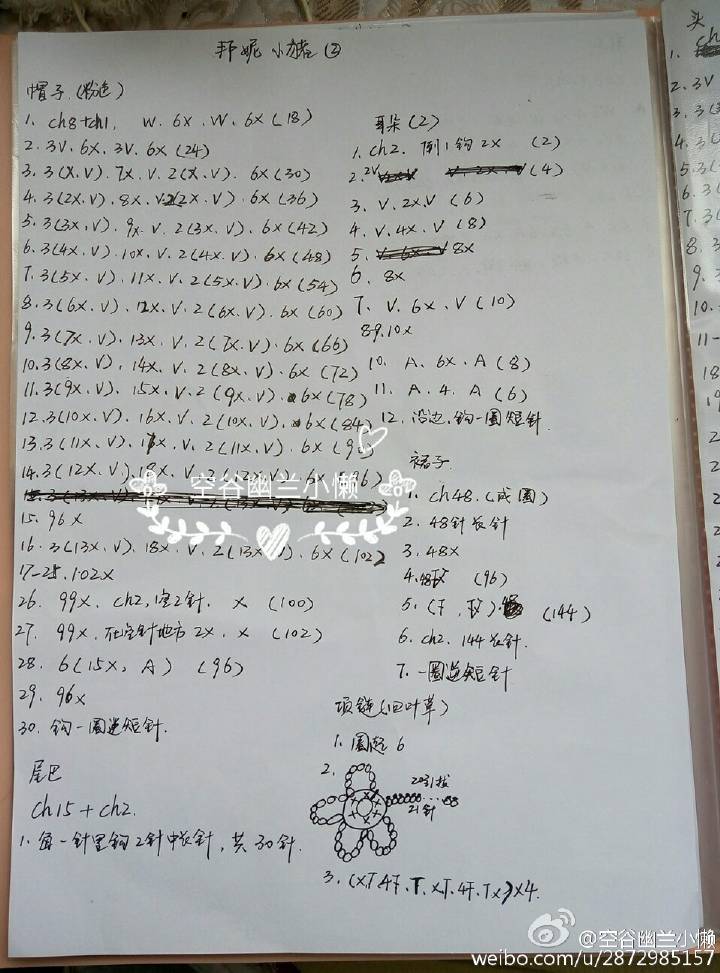 邦妮小猪②
帽子(粉色)
1. ch8+ch1, W. 6X. W. 6X(18)
2. 3V. 6X. 3V. 6X(24)
3. 3(X.V). 7X. V. 2(X.V). 6X(30)
4. 3(2X.V). 8X. V. 2(2X.V). 6X(36)
5. 3(3X.V). 9X. V. 2(3X.V). 6X(42)
6. 3(4X.V). 10X. V. 2(4X.V). 6X(48)
7. 3(5X.V). 11X. V. 2(5X.V). 6X(54)
8. 3(6X.V). 12X. V. 2(6X.V). 6X(60)
9. 3(7X.V). 13X. V. 2(7X.V). 6X(66)
10. 3(8X.V). 14X. V. 2(8X.V). 6X(72)
11. 3(9X.V). 15X. V. 2(9X.V). 6X(78)
12. 3(10X.V). 16X. V. 2(10X.V). 6X(84)
13. 3(11X.V). X. V. 2(11X.V). 6X(9
14. 3(12X.V). 18X. V. 2(12X.V). 6X(96)
15. 96X
16. 3(13X.V). 18X. V. 2(13X.V). 6X(102)
17-25. 102X
26. 99X. ch2, 空2针. X (100)
27. 99X. 在空针地方2X. X (102)
28. 6(15X, A) (96)
29. 96X
30. 钩一圈逆短针.
尾巴
ch15+ch2.
1. 每一针里钩2针中长针, 共30针.
耳朵(2)
1. ch2. 倒1钩2X (2)
2. 2V (4)
3. V. 2X. V (6)
4. V. 4X. V (8)
5. 8X
6. 8X
7. V. 6X. V (10)
8.9. 10X
10. A. 6X. A (8)
11. A. 4. A (6)
12. 沿边钩一圈短针.
裙子
1. ch48. (成圈)
2. 48针长针
3. 48X
4. (96)
5. (144)
6. ch2. 144长针.
7. 一圈逆短针
项链(四叶草)
1. 圈起6
2.
20引拔
21针
3. (X.T.4F.T.X.T.4F.T.X)×4.
头
空谷幽兰小懒
@空谷幽兰小懒
weibo.com/u/2872985157